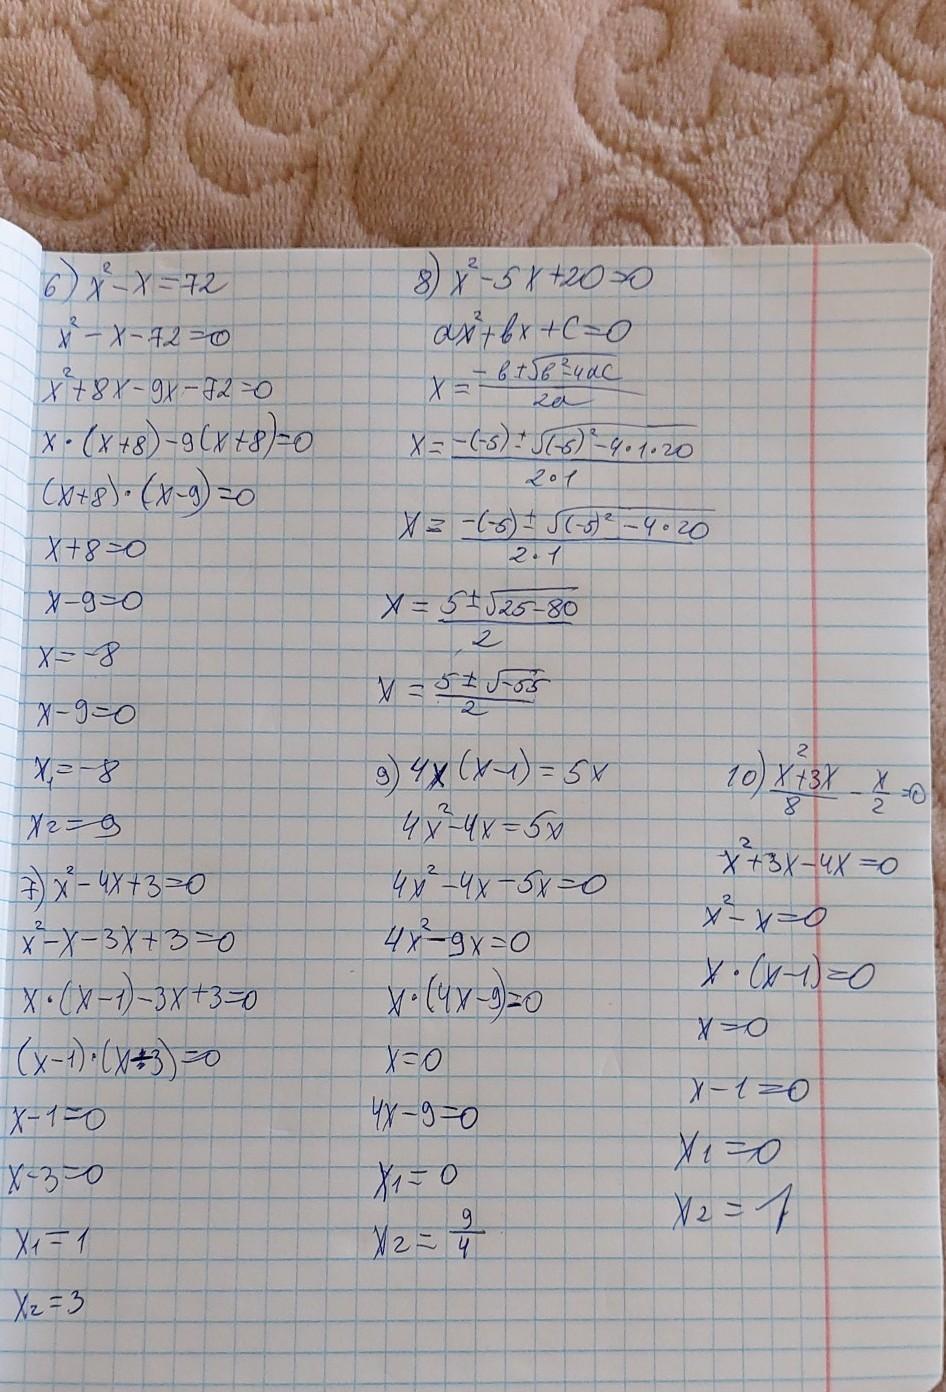 6) x² - x = 72
x² - x - 72 = 0
x² + 8x - 9x - 72 = 0
x · (x+8) - 9(x+8) = 0
(x+8) · (x-9) = 0
x + 8 = 0
x - 9 = 0
x = -8
x - 9 = 0
x₁ = -8
x₂ = 9
7) x² - 4x + 3 = 0
x² - x - 3x + 3 = 0
x · (x-1) - 3x + 3 = 0
(x-1) · (x-3) = 0
x - 1 = 0
x - 3 = 0
x₁ = 1
x₂ = 3
8) x² - 5x + 20 = 0
ax² + bx + c = 0
x = (-b ± √(b² - 4ac))/(2a)
x = (-(-5) ± √((-5)² - 4·1·20))/(2·1)
x = (-(-5) ± √((-5)² - 4·20))/(2·1)
x = (5 ± √(25-80))/2
x = (5 ± √(-55))/2
9) 4x(x-1) = 5x
4x² - 4x = 5x
4x² - 4x - 5x = 0
4x² - 9x = 0
x · (4x-9) = 0
x = 0
4x - 9 = 0
x₁ = 0
x₂ = 9/4
10) (x² + 3x)/8 - x/2 = 0
x² + 3x - 4x = 0
x² - x = 0
x · (x-1) = 0
x = 0
x - 1 = 0
x₁ = 0
x₂ = 1